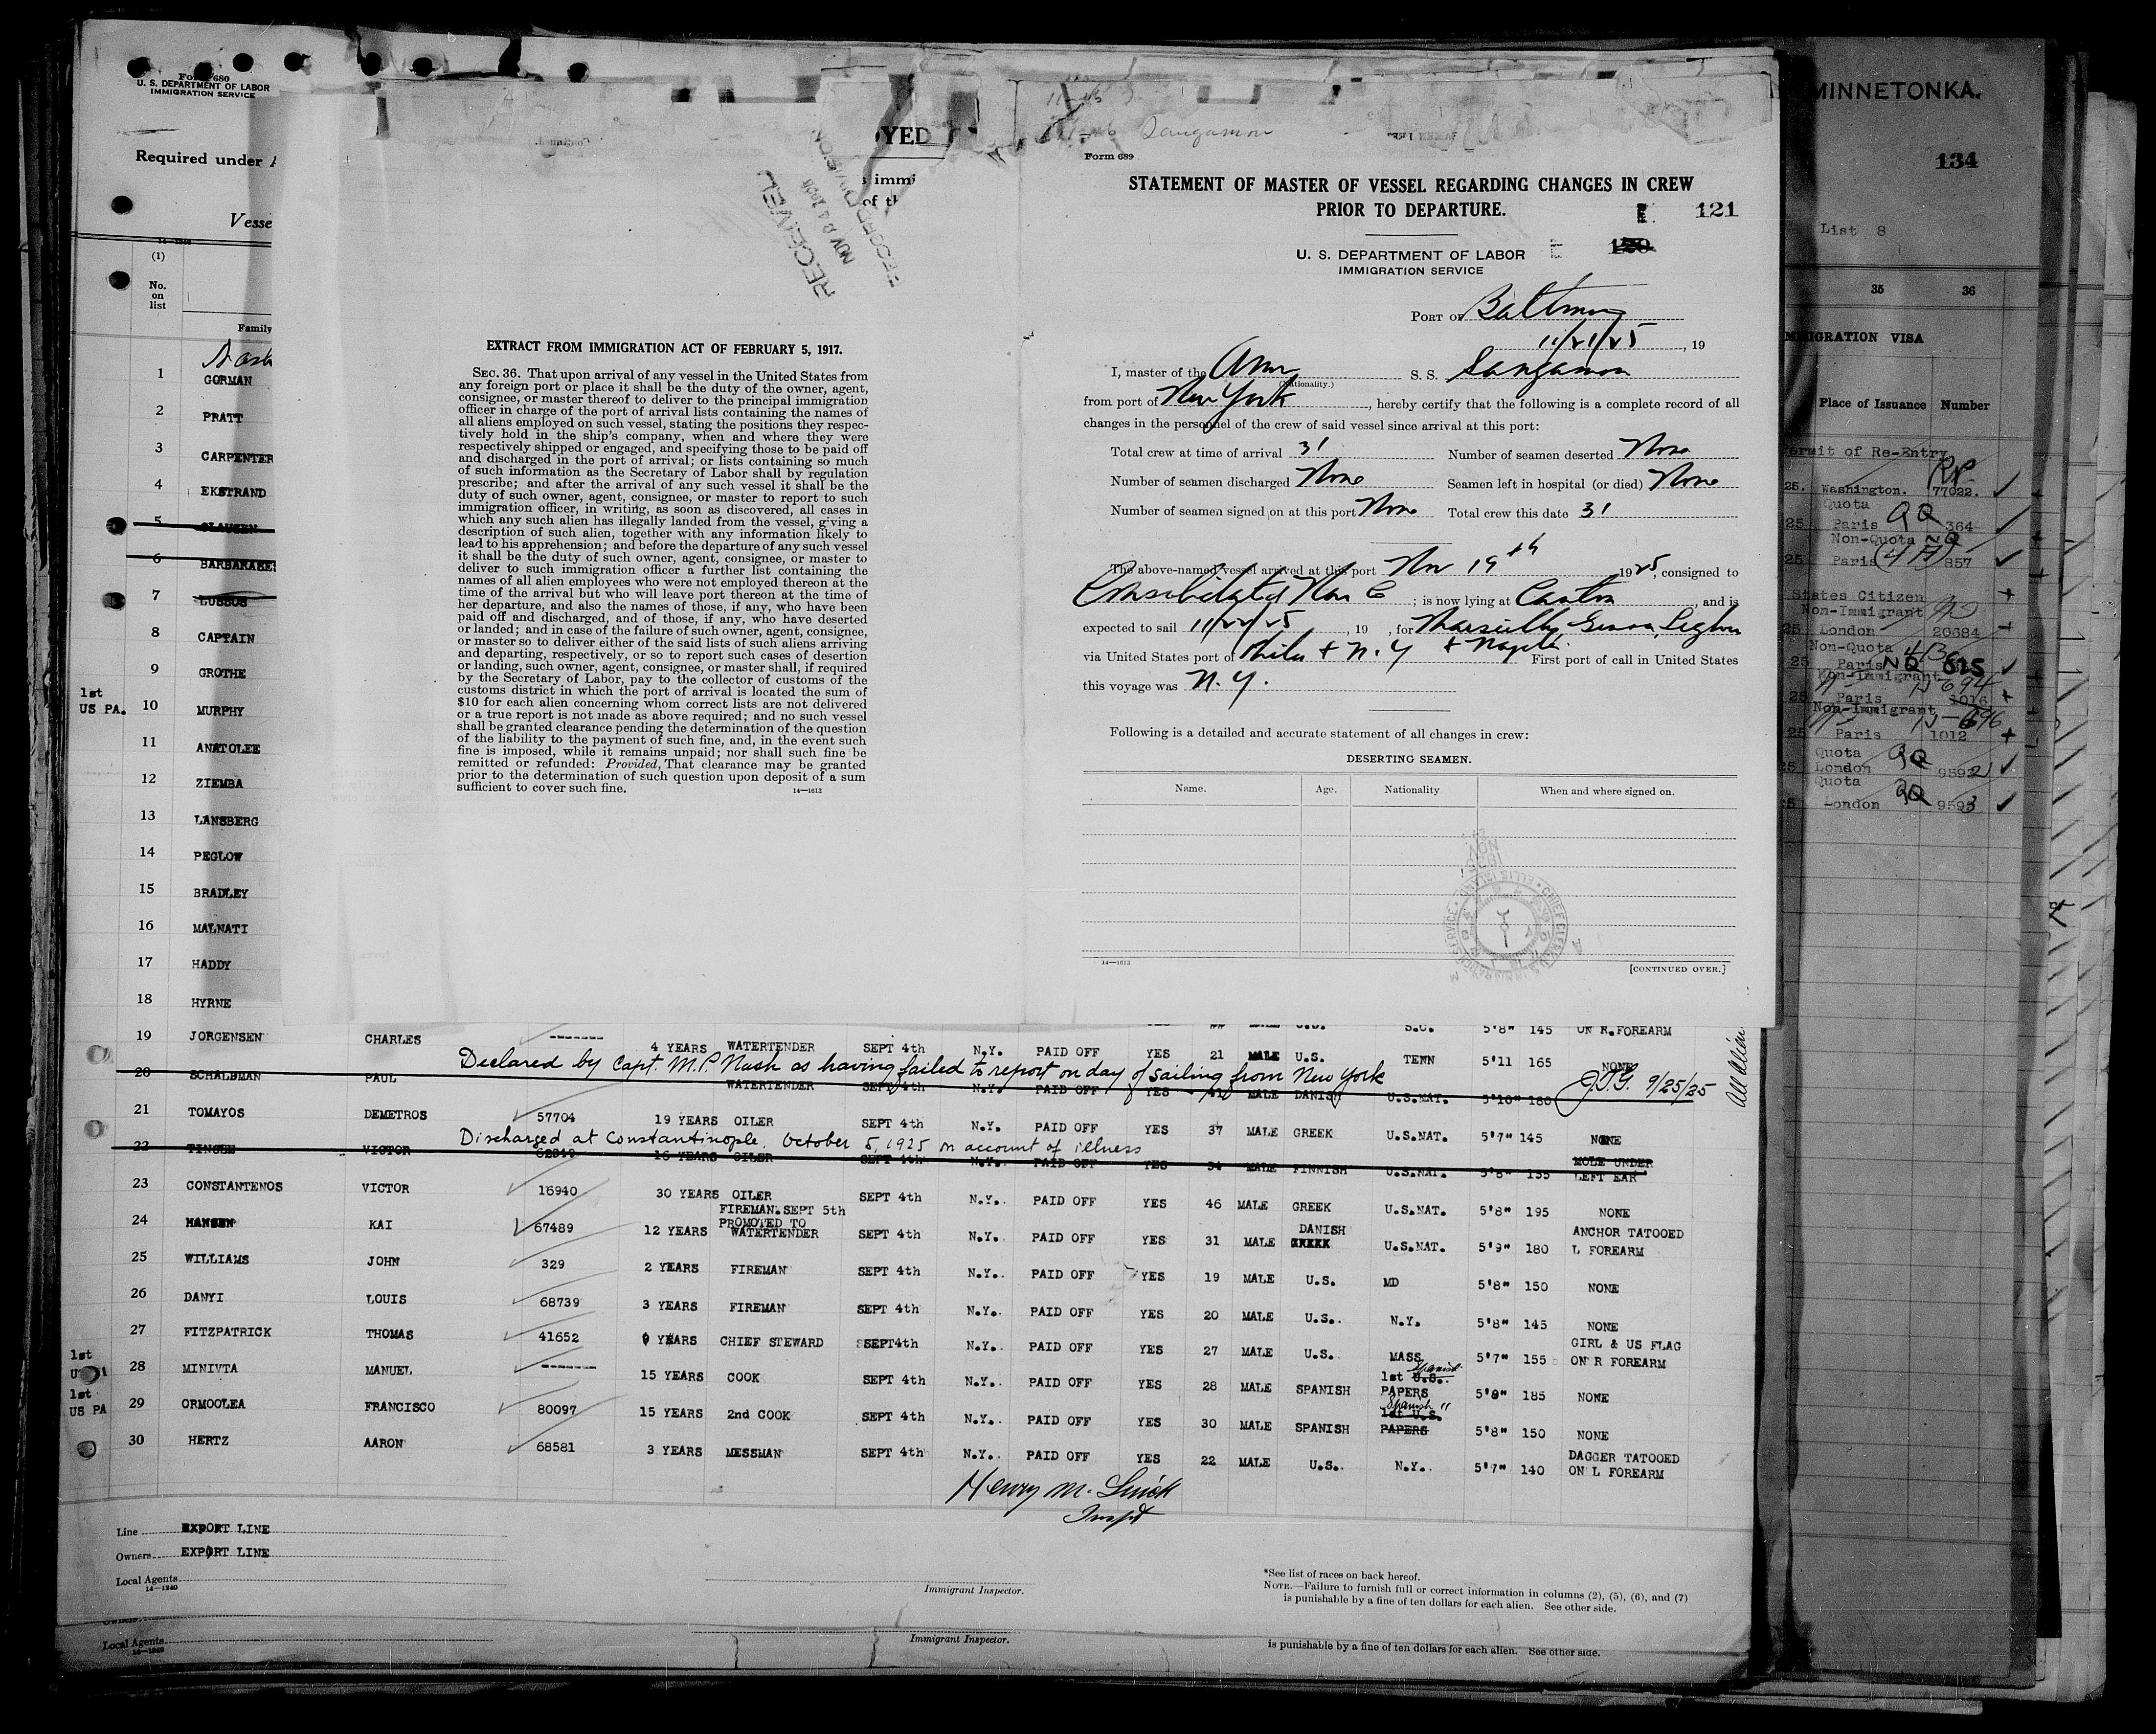 Form 680
U. S. DEPARTMENT OF LABOR
IMMIGRATION SERVICE
Required under
Vesse
(1)
No.
on
list
Family
1 GORMAN
2 PRATT
3 CARPENTER
4 EKSTRAND
5 CLAUSEN
6
7
8 CAPTAIN
9 GROTHE
1st
US PA. 10 MURPHY
11 ANATOLEE
12 ZIEMBA
13 LANSBERG
14 PEGLOW
15 BRADLEY
16 MALNATI
17 HADDY
18 HYRNE
OYED
immi
of th
RECEIVED
NOV 24 1925
RECORD DIVISION
EXTRACT FROM IMMIGRATION ACT OF FEBRUARY 5, 1917.
SEC. 36. That upon arrival of any vessel in the United States from
any foreign port or place it shall be the duty of the owner, agent,
consignee, or master thereof to deliver to the principal immigration
officer in charge of the port of arrival lists containing the names of
all aliens employed on such vessel, stating the positions they respec-
tively hold in the ship's company, when and where they were
respectively shipped or engaged, and specifying those to be paid off
and discharged in the port of arrival; or lists containing so much
of such information as the Secretary of Labor shall by regulation
prescribe; and after the arrival of any such vessel it shall be the
duty of such owner, agent, consignee, or master to report to such
immigration officer, in writing, as soon as discovered, all cases in
which any such alien has illegally landed from the vessel, giving a
description of such alien, together with any information likely to
lead to his apprehension; and before the departure of any such vessel
it shall be the duty of such owner, agent, consignee, or master to
deliver to such immigration officer a further list containing the
names of all alien employees who were not employed thereon at the
time of the arrival but who will leave port thereon at the time of
her departure, and also the names of those, if any, who have been
paid off and discharged, and of those, if any, who have deserted
or landed; and in case of the failure of such owner, agent, consignee,
or master so to deliver either of the said lists of such aliens arriving
and departing, respectively, or so to report such cases of desertion
or landing, such owner, agent, consignee, or master shall, if required
by the Secretary of Labor, pay to the collector of customs of the
customs district in which the port of arrival is located the sum of
$10 for each alien concerning whom correct lists are not delivered
or a true report is not made as above required; and no such vessel
shall be granted clearance pending the determination of the question
of the liability to the payment of such fine, and, in the event such
fine is imposed, while it remains unpaid; nor shall such fine be
remitted or refunded: Provided, That clearance may be granted
prior to the determination of such question upon deposit of a sum
sufficient to cover such fine.
14—1613
Sangamon
Form 689
STATEMENT OF MASTER OF VESSEL REGARDING CHANGES IN CREW
PRIOR TO DEPARTURE.
121
120
U. S. DEPARTMENT OF LABOR
IMMIGRATION SERVICE
PORT OF Baltimore
11/21/25, 19
I, master of the Amr S. S. Sangamon
(Nationality.)
from port of New York, hereby certify that the following is a complete record of all
changes in the personnel of the crew of said vessel since arrival at this port:
Total crew at time of arrival 31 Number of seamen deserted None
Number of seamen discharged None Seamen left in hospital (or died) None
Number of seamen signed on at this port None Total crew this date 31
The above-named vessel arrived at this port Nov 19th 1925, consigned to
Consolidated Nav C; is now lying at Canton, and is
expected to sail 11/22/25, 19, for Marseille Genoa, Leghorn
via United States port of Phila + N. Y + Naples. First port of call in United States
this voyage was N. Y.
Following is a detailed and accurate statement of all changes in crew:
DESERTING SEAMEN.
Name. Age. Nationality When and where signed on.
14—1613
[CONTINUED OVER.]
5'8" 145 ON R. FOREARM
19 JORGENSEN CHARLES 4 YEARS WATERTENDER SEPT 4th N.Y. PAID OFF YES 21 MALE U.S. TENN 5'11 165 NONE
Declared by Capt. M.P. Nash as having failed to report on day of sailing from New York J.T.G. 9/25/25
20 SCHALDMAN PAUL WATERTENDER SEPT 4th N.Y. PAID OFF YES 41 MALE DANISH U.S.NAT. 5'10" 180
21 TOMAYOS DEMETROS 57704 19 YEARS OILER SEPT 4th N.Y. PAID OFF YES 37 MALE GREEK U.S.NAT. 5'7" 145 NONE
Discharged at Constantinople. October 5, 1925 on account of illness
22 VICTOR 16 YEARS OILER SEPT 4th N.Y. PAID OFF YES 34 MALE FINNISH U.S.NAT. 5'8" 155 MOLE UNDER LEFT EAR
23 CONSTANTENOS VICTOR 16940 30 YEARS OILER SEPT 4th N.Y. PAID OFF YES 46 MALE GREEK U.S.NAT. 5'8" 195 NONE
FIREMAN.SEPT 5th
PROMOTED TO
24 HANSEN KAI 67489 12 YEARS WATERTENDER SEPT 4th N.Y. PAID OFF YES 31 MALE DANISH U.S.NAT. 5'9" 180 ANCHOR TATOOED L FOREARM
25 WILLIAMS JOHN 329 2 YEARS FIREMAN SEPT 4th N.Y. PAID OFF YES 19 MALE U.S. MD 5'8" 150 NONE
26 DANYI LOUIS 68739 3 YEARS FIREMAN SEPT 4th N.Y. PAID OFF YES 20 MALE U.S. N.Y. 5'8" 145 NONE
27 FITZPATRICK THOMAS 41652 9 YEARS CHIEF STEWARD SEPT4th N.Y. PAID OFF YES 27 MALE U.S. MASS 5'7" 155 GIRL & US FLAG ON R FOREARM
1st
28 MINIVTA MANUEL 15 YEARS COOK SEPT 4th N.Y. PAID OFF YES 28 MALE SPANISH 1st U.S. Spanish PAPERS 5'9" 185 NONE
1st
US PA 29 ORMOOLEA FRANCISCO 80097 15 YEARS 2nd COOK SEPT 4th N.Y. PAID OFF YES 30 MALE SPANISH Spanish " 1st U.S. PAPERS 5'8" 150 NONE
30 HERTZ AARON 68581 3 YEARS MESSMAN SEPT 4th N.Y. PAID OFF YES 22 MALE U.S. N.Y. 5'7" 140 DAGGER TATOOED ON L FOREARM
Henry M.
Line EXPORT LINE
Owners EXPORT LINE
Local Agents
14—1240
Immigrant Inspector.
*See list of races on back hereof.
NOTE.—Failure to furnish full or correct information in columns (2), (5), (6), and (7)
is punishable by a fine of ten dollars for each alien. See other side.
Local Agents
14—1240
Immigrant Inspector.
is punishable by a fine of ten dollars for each alien. See other side.
All Alien
MINNETONKA.
134
List 8
35 36
MIGRATION VISA
Place of Issuance Number
ermit of Re-Entry
25. Washington. 77022.
Quota
25 Paris QQ 364
Non-Quota NQ
25 Paris 857
States Citizen
Non-Immigrant
25 London 20684
Non-Quota
25 Paris NQ 615
Non-Immigrant
25 Paris 1016
Non-Immigrant
25 Paris 1012
Quota
25 London QQ 9592
Quota
25 London QQ 9593